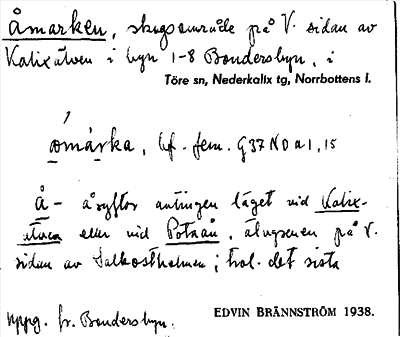 Åmarken, skogsområde på V. sidan av
Kalixälven i byn 1-8 Bondersbyn, i
Töre sn, Nederkalix tg, Norrbottens l.
åmárka, bf. fem. G37 N D a 1, 15
Å- åsyftar antingen läget vid Kalix-
älven eller vid Potaån, älvgrenen på V.
sidan av Laxholmen; trol. det sista
uppg. fr. Bondersbyn.
EDVIN BRÄNNSTRÖM 1938.